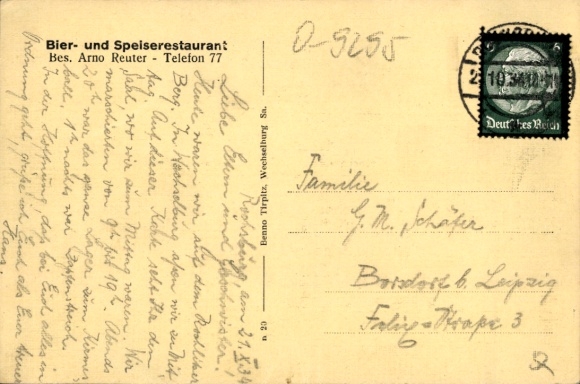 Bier- und Speiserestaurant
Bes. Arno Reuter - Telefon 77
Rochsburg am 21.X.34
Liebe Eltern und Geschwister!
Heute waren wir auf dem Rochlitzer
Berg. In Wechselburg aßen wir zu Mit-
tag. Auf dieser Karte seht Ihr den
Saal, wo wir zum Mittag waren. Wir
marschierten von 9h bis 19h. Abends
20h war das ganze Lager zum Kirmes-
ball. 1h nachts war Zapfenstreich.
In der Hoffnung, daß bei Euch alles in
Ordnung geht, grüße ich Euch als Euer treuer
Hans.
Benno Tirpitz, Wechselburg Sa.
n 29
O-9295
10.34
6
6
Deutsches Reich
Familie
G. M. Schäfer
Borsdorf b. Leipzig
Straße 3